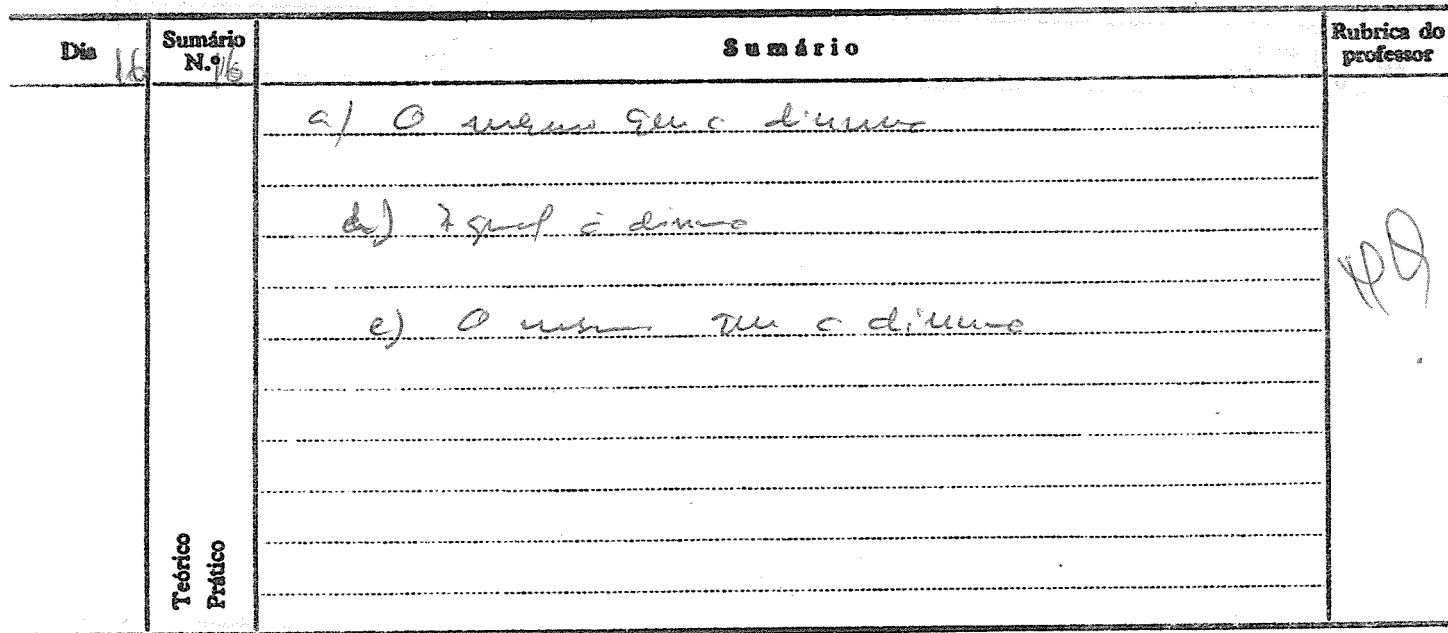 Dia 16
Sumário N.º 16
Sumário
Rubrica do professor
a) O mesmo que a diurna
b) Igual à diurna
c) O mesmo que a diurna
Teórico
Prático